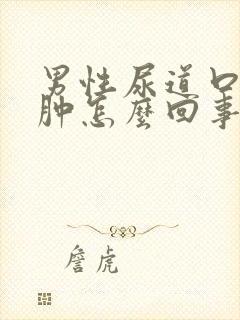 男性尿道口
肿怎麼回事
詹虎